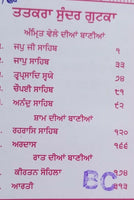 ਤਤਕਰਾ ਸੁੰਦਰ ਗੁਟਕਾ
ਅੰਮ੍ਰਿਤ ਵੇਲੇ ਦੀਆਂ ਬਾਣੀਆਂ
ਜਪੁ ਜੀ ਸਾਹਿਬ ੧
ਜਾਪੁ ਸਾਹਿਬ ੩੩
ਤ੍ਵਪ੍ਰਸਾਦਿ ਸ੍ਵਯੇ
ਚੌਪਈ ਸਾਹਿਬ
ਅਨੰਦੁ ਸਾਹਿਬ ੯੨
ਸ਼ਾਮ ਦੀਆਂ ਬਾਣੀਆਂ
ਰਹਰਾਸਿ ਸਾਹਿਬ ੧੨੦
ਅਰਦਾਸ ੧੬੬
ਰਾਤ ਦੀਆਂ ਬਾਣੀਆਂ
ਕੀਰਤਨ ਸੋਹਿਲਾ
ਆਰਤੀ
BC